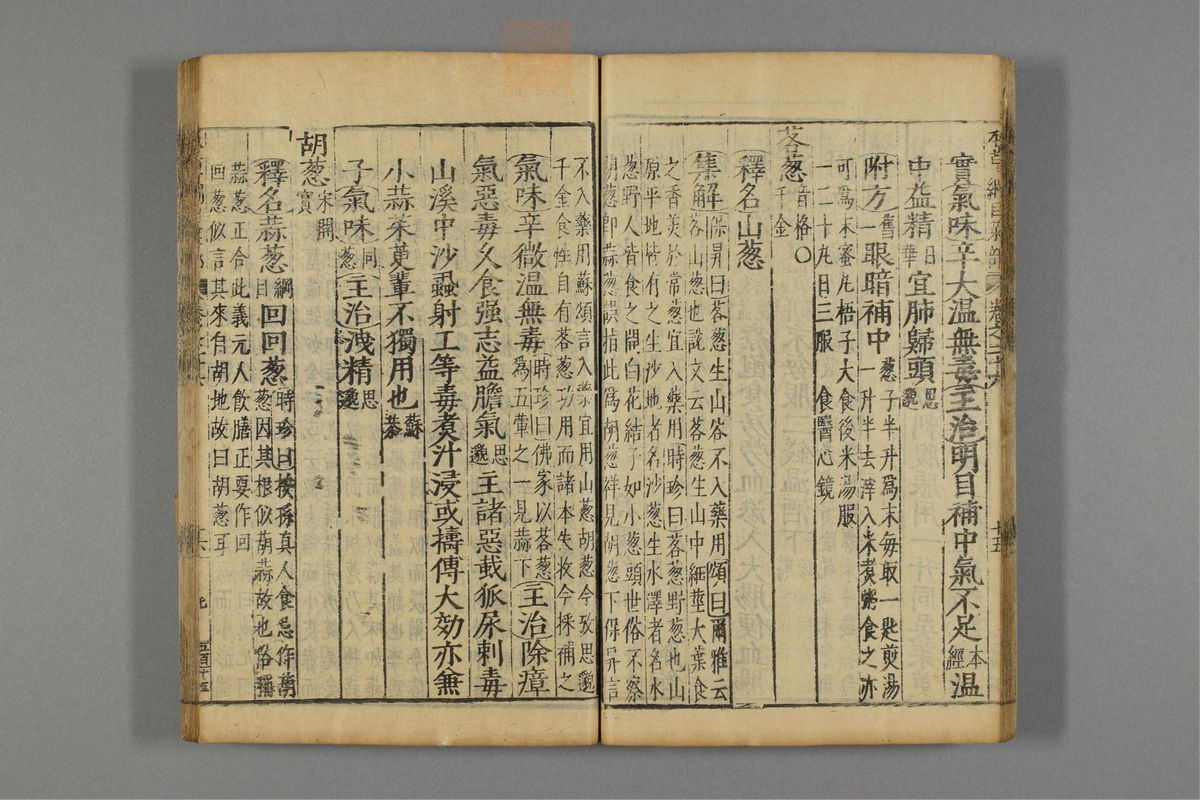 實氣味辛大温無毒主治明目補中氣不足本經温
中益精日華宜肺歸頭思邈
附方舊一眼暗補中葱子半升爲末每取一匙煎湯
一升半去滓入米煮粥食之亦
可爲末蜜丸梧子大食後米湯服
一二十丸日三服 食醫心鏡
茖葱音格〇千金
釋名山葱
集解保昇曰茖葱生山谷不入藥用頌曰爾雅云
茖山葱也說文云茖葱生山中細莖大葉食
之香美於常葱宜入藥用時珍曰茖葱野葱也山
原平地皆有之生沙地者名沙葱生水澤者名水
葱野人皆食之開白花結子如小葱頭世俗不察
胡葱即蒜葱誤指此爲胡葱祥見胡葱下保昇言
不入藥用蘇頌言入藥宜用山葱胡葱今攷思邈
千金食性自有茖葱功用而諸本失收今採補之
氣味辛微温無毒時珍曰佛家以茖葱
爲五葷之一見蒜下主治除瘴
氣惡毒久食强志益膽氣思邈主諸惡載狐尿刺毒
山溪中沙蝨射工等毒煮汁浸或擣傅大効亦兼
小蒜茱萸輩不獨用也蘇恭
子氣味同葱主治洩精思邈
胡葱宋開寶
釋名蒜葱綱目回回葱時珍曰按孫真人食忌作葫
葱因其根似葫蒜故也俗稱
蒜葱正合此義元人飲膳正要作回
回葱似言其來自胡地故曰胡葱耳